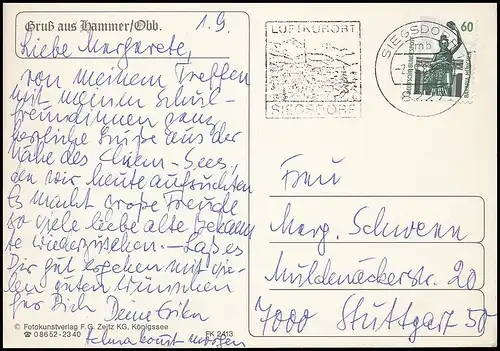 Gruß aus Hammer/Obb.
1.9.
Liebe Margarete,
von meinem Treffen
mit meinen Schul-
freundinnen ganz
herzliche Grüße aus der
Nähe des Chiem-Sees,
den wir heute aufsuchten
Es macht große Freude
so viele liebe alte Bekann
te wiederzusehen. – Laß es
Dir gut ergehen mit vie-
len guten Wünschen
für Dich Deine Erika
© Fotokunstverlag F.G. Zeitz KG, Königssee
☎ 08652-2340 FK 2413
kommt morgen
LUFTKURORT
SIEGSDORF
SIEGSDORF
mb
60
Frau
Marg. Schwenn
Muldenäckerstr. 20
7000 Stuttgart 50